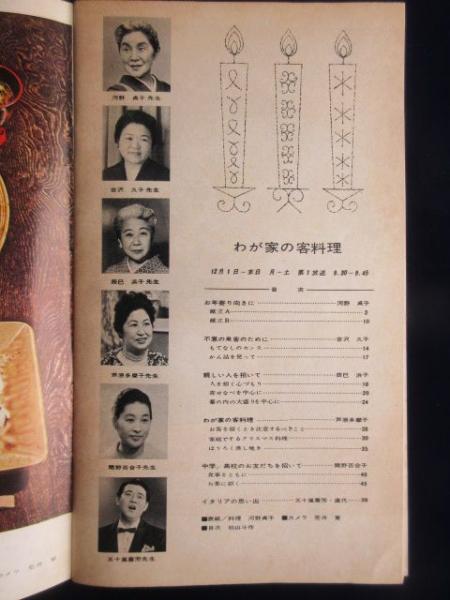 河野 貞子先生
吉沢 久子先生
辰巳 浜子先生
芦原多磨子先生
関野百合子先生
五十嵐喜芳先生
わが家の客料理
12月1日-末日 月-土 第1放送 9.30-9.45
目 次
お年寄り向きに 河野 貞子
献立A 2
献立B 10
不意の来客のために 吉沢 久子
もてなしのセンス 14
かん詰を使って 17
親しい人を招いて 辰巳 浜子
人を招く心づもり 18
寄せなべを中心に 20
幕の内の大盛りを中心に 24
わが家の客料理 芦原多磨子
お客を招くとき注意すべきこと 28
家庭でするクリスマス料理 30
ほうろく蒸し焼き 35
中学、高校のお友だちを招いて 関野百合子
食事をともに 40
お茶に招く 45
イタリアの思い出 五十嵐喜芳
■表紙／料理 河野貞子 ■カメラ
■目次